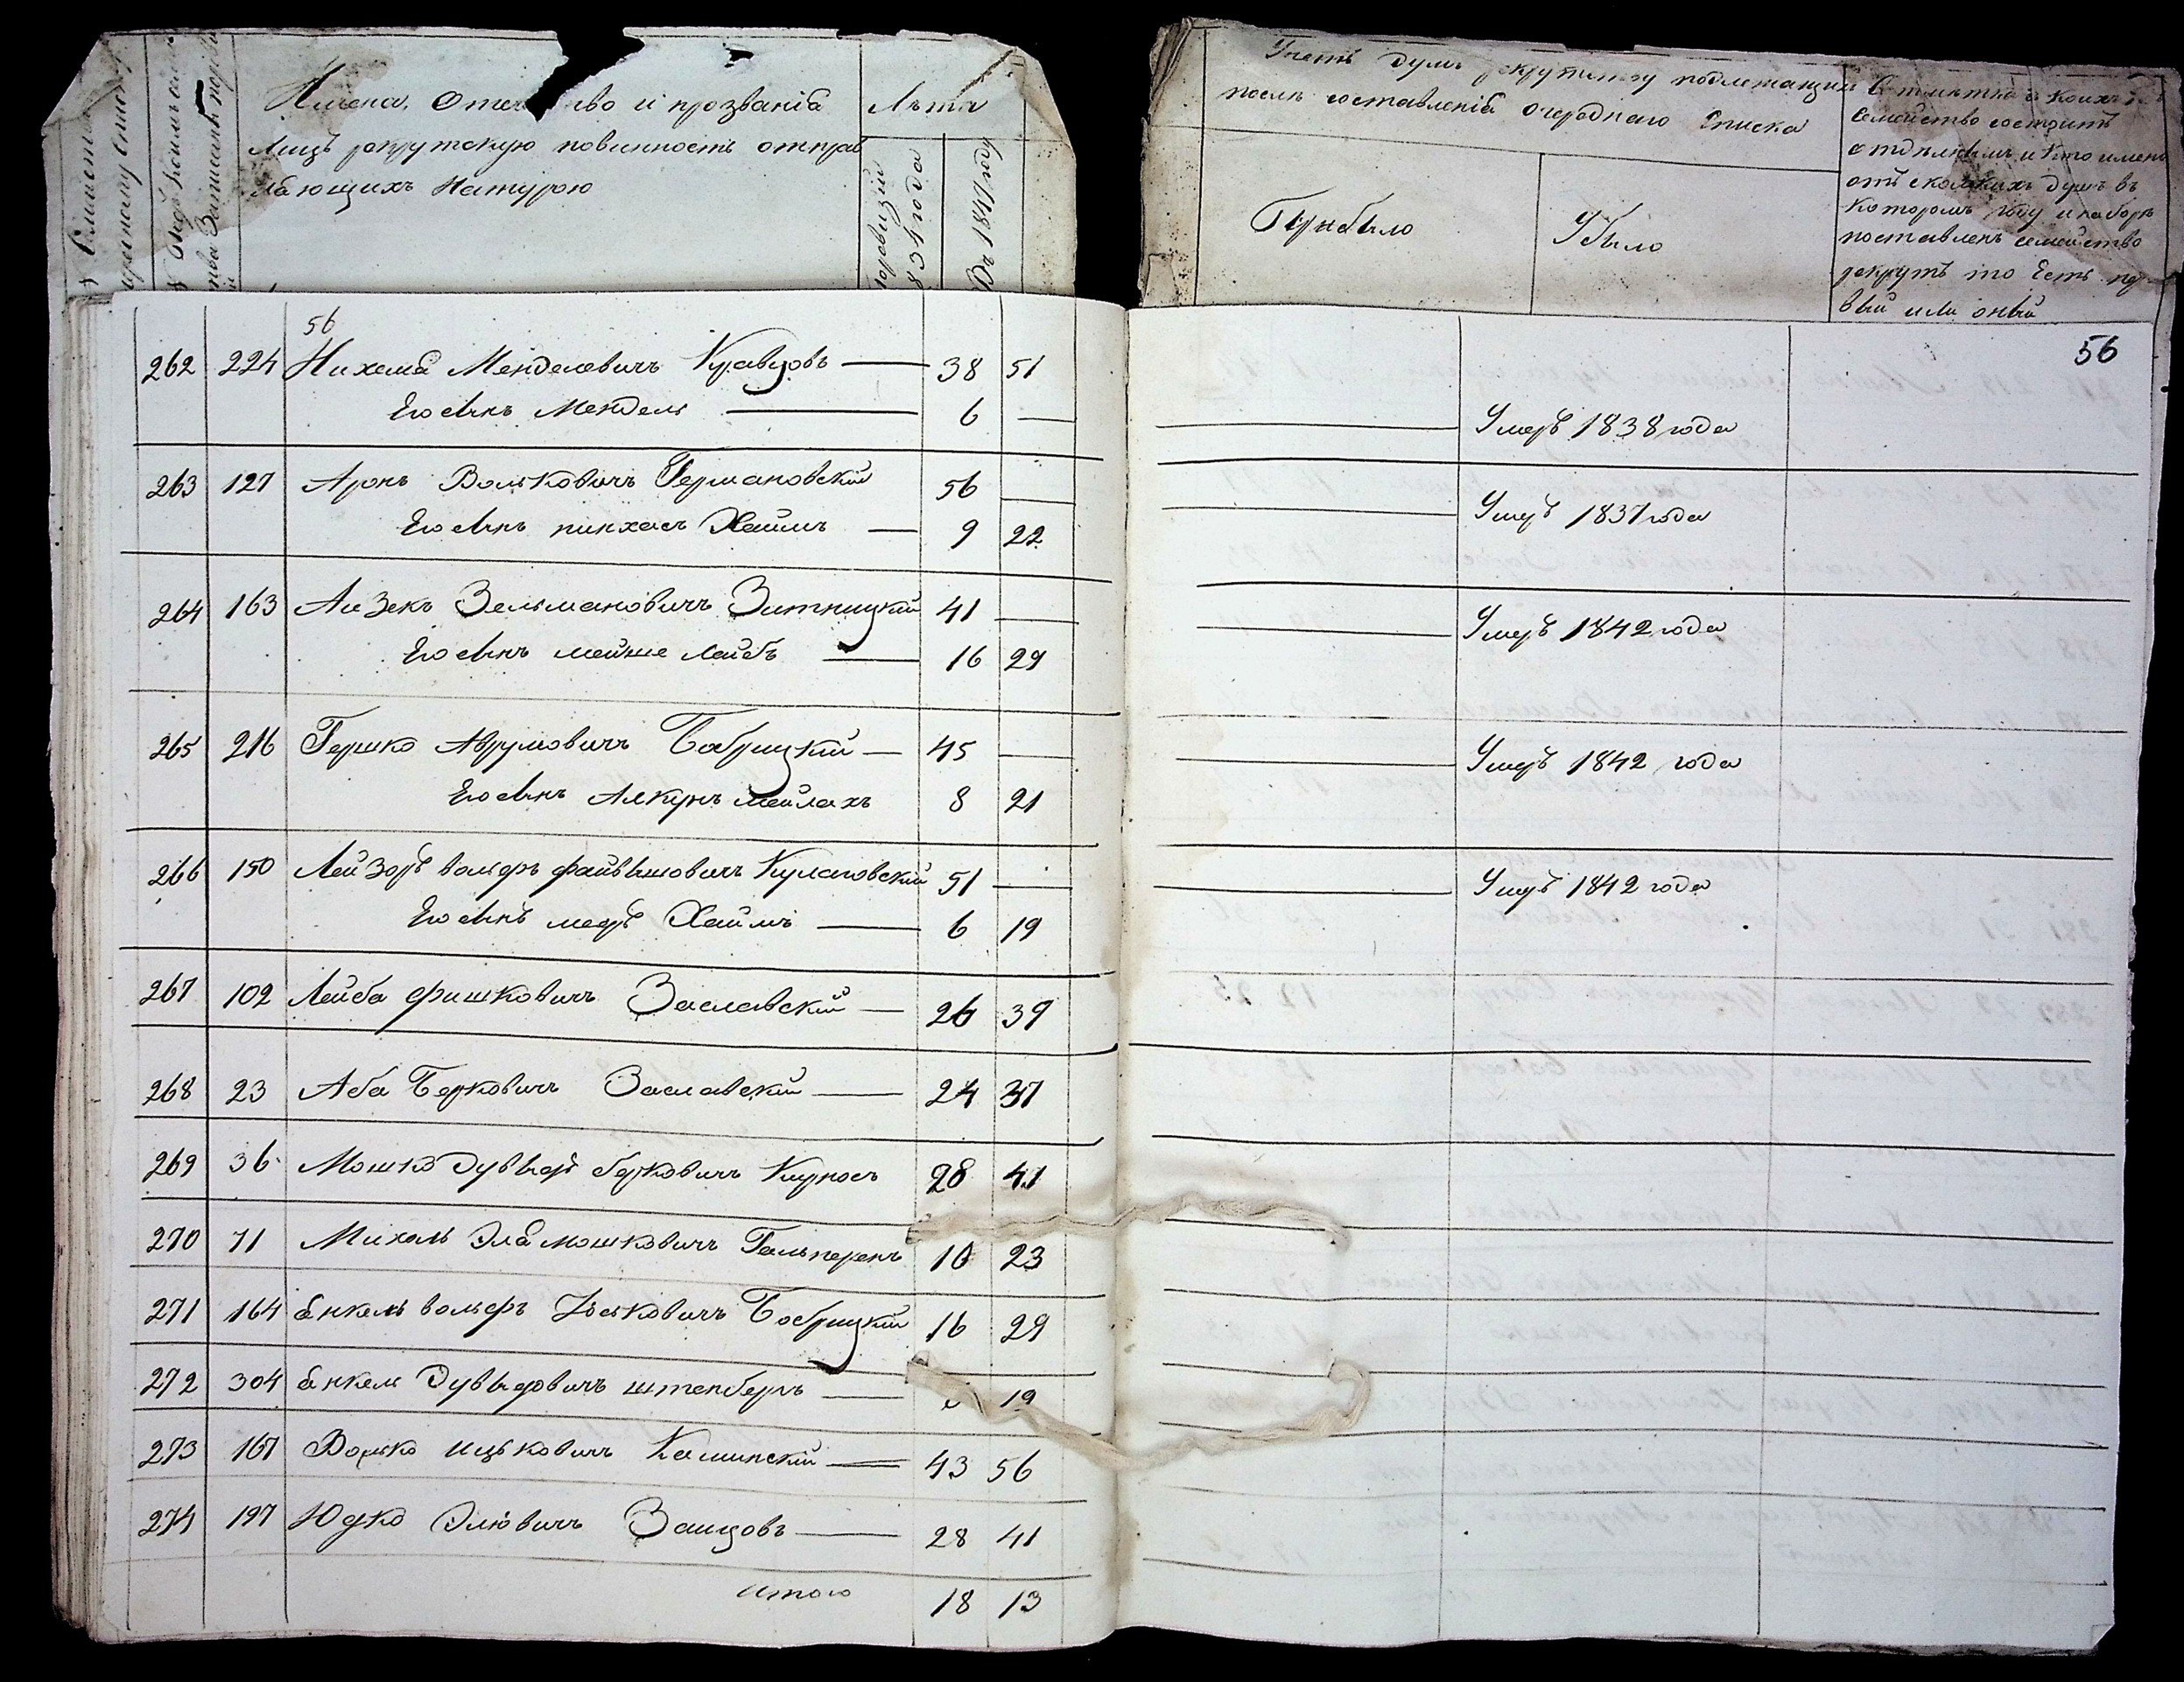 Имена, Отечество и прозванія
Лѣта
Лицъ рекрутскую повинность отправ
ляющихъ Натурою
По ревизіи
834 года
Въ 1847 году
душъ рекрутству подлежащихъ
послѣ составленія очереднаго Списка
Прибыло
Убыло
Семейство состоитъ
душъ въ
которомъ году и наборѣ
поставленъ семейство
рекрутъ то Есть пер
вый или оный
56
56
262 224 Нихема Менделевичъ Кравцовъ 38 51
Его Сынъ Мендель 6 — Умеръ 1838 года
263 127 Аронъ Вольковичъ Германовскій 56 — Умеръ 1837 года
Его Сынъ пинхасъ Хаимъ 9 22
264 163 Аизекъ Зельмановичъ Житницкий 41 — Умеръ 1842 года
Его Сынъ мейше Лейбъ 16 29
265 216 Гершко Аврумовичъ Бобрицкий 45 — Умеръ 1842 года
Его Сынъ мейлахъ 8 21
266 150 Лейзоръ вольфъ файвишовичъ 51 — Умеръ 1842 года
Его Сынъ мееръ Хаимъ 6 19
267 102 Лейба Фишковичъ Заславский 26 39
268 23 Аба Берковичъ Заславский 24 37
269 36 Мошко Дувыдъ берковичъ Курносъ 28 41
270 71 Михаль Эля мошковичъ Гальперенъ 10 23
271 164 Енкель вольфъ Іоськовичъ Бобрицкий 16 29
272 304 Енкель Дувыдовичъ штенбергъ 19
273 167 Волько ицьковичъ Каминский 43 56
274 197 Юдко Элювичъ Заицовъ 28 41
Итого 18 13